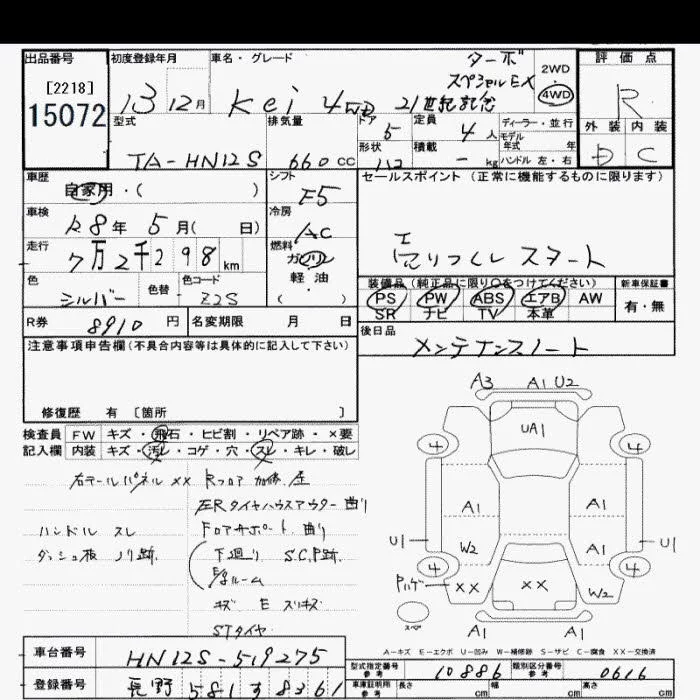 出品番号
[2218]
15072
初度登録年月
13 12月
車名・グレード
Kei 4WD 21世紀記念
ターボ
スペシャルEX
2WD
4WD
評価点
R
外装 内装
D C
型式
TA-HN12S
排気量
660cc
ドア
5
定員
4人
ディーラー・並行
モデル
年式 年
形状
積載
- kg
ハンドル 左・右
車歴
自家用・( )
シフト
F5
セールスポイント (正常に機能するものに限ります)
売りつくしスタート
車検
R8年 5月( 日)
冷房
AC
走行
7万2千298km
燃料
ガソリン
軽油
( )
色
シルバー
色替
色コード
Z2S
装備品 (純正品に限り○をつけてください)
PS PW ABS エアB AW
SR ナビ TV 本革
新車保証書
有・無
R券 8910円
名変期限 月 日
後日品
メンテナンスノート
注意事項申告欄(不具合内容等は具体的に記入して下さい)
修復歴 有 [箇所 ]
検査員
記入欄
FW キズ・飛石・ヒビ割・リペア跡・×要
内装 キズ・汚れ・コゲ・穴・スレ・キレ・破し
右テールパネル ×× Rフロア 加修、歪
左Rタイヤハウスアウター 曲り
ハンドル スレ
Fロアサポート 曲り
ダッシュ板 ノリ跡
下廻り S.C.P跡
E/gルーム
キズ E スリキズ
STタイヤ
A3 A1 U2
UA1
4 4
A1 A1
U1 W2 A1 U1
4 4
Pハゲ ×× ×× W2
スペア
A1 A1
A-キズ E-エクボ U-凹み W-補修跡 S-サビ C-腐食 XX-交換済
車台番号
HN12S-519275
登録番号
長野 581 す 8361
型式指定番号
参考
10886
類別区分番号
参考
0616
車庫証明用
参考
長さ cm
幅 cm
高さ cm